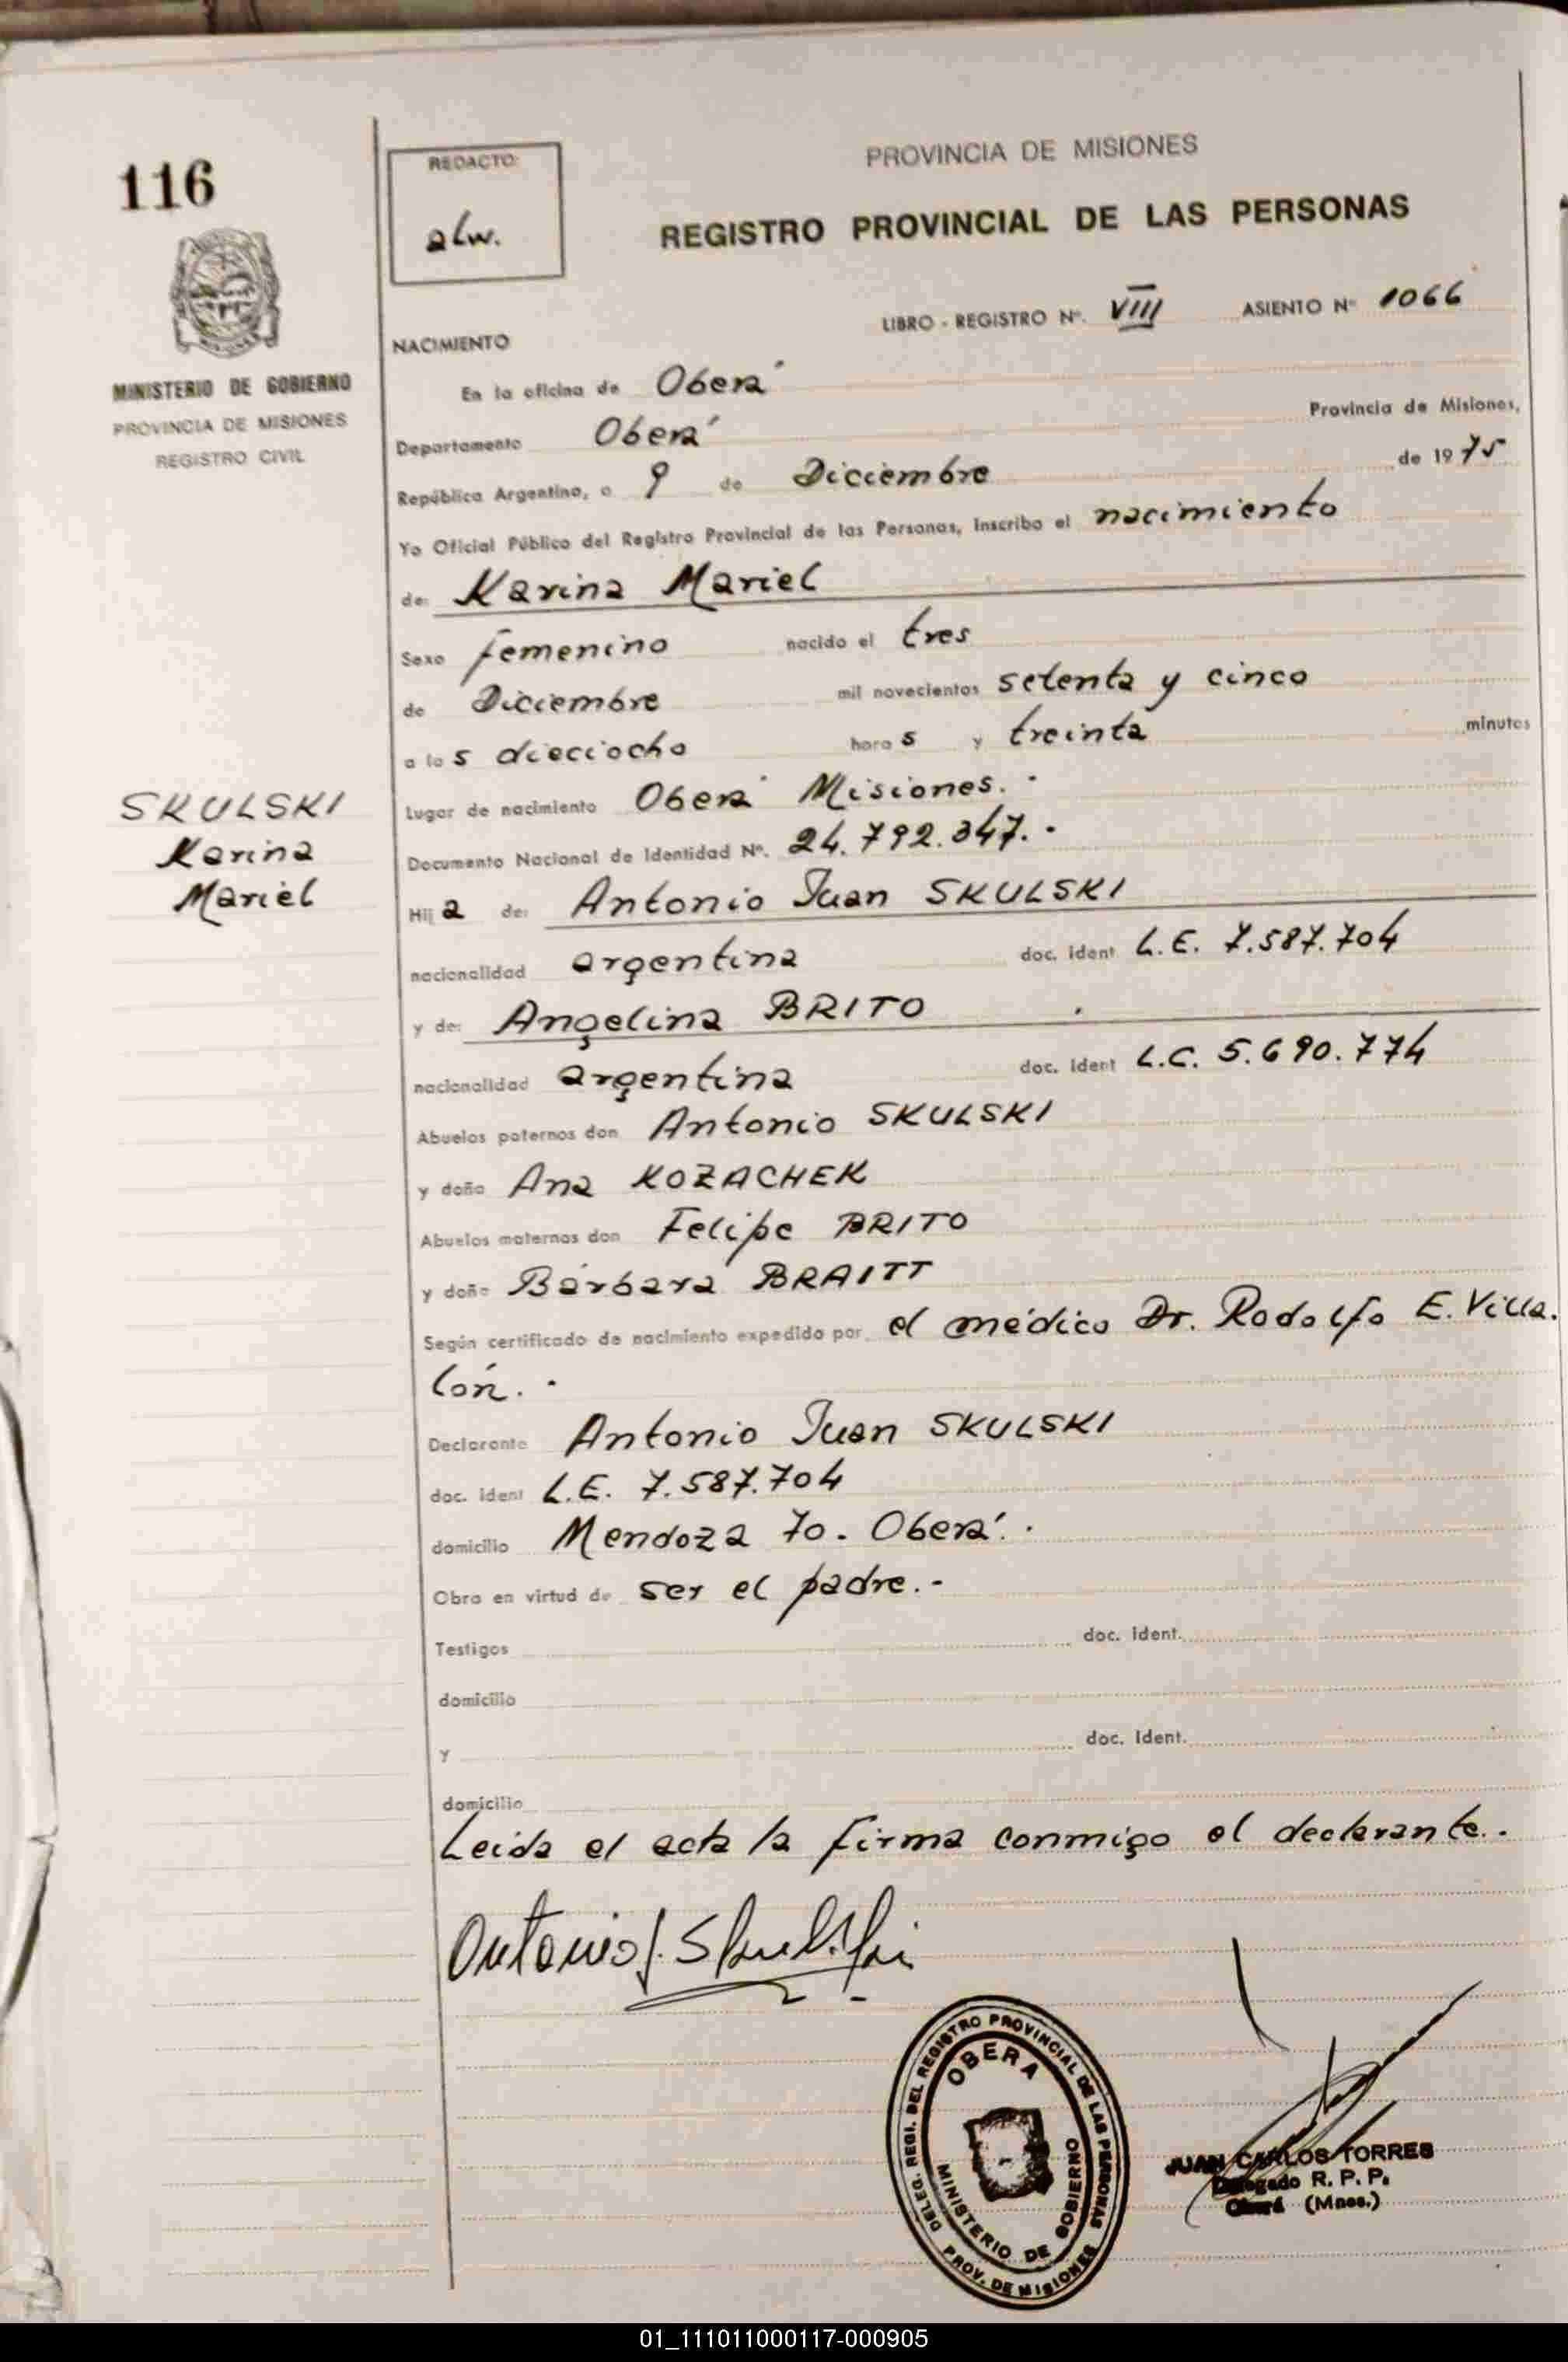 116
REDACTO:
alw.
PROVINCIA DE MISIONES
REGISTRO PROVINCIAL DE LAS PERSONAS
LIBRO - REGISTRO Nº. VIII ASIENTO Nº 1066
MINISTERIO DE GOBIERNO
PROVINCIA DE MISIONES
REGISTRO CIVIL
NACIMIENTO
En la oficina de Oberá
Provincia de Misiones,
Departamento Oberá
República Argentina, a 9 de Diciembre de 1975
Yo Oficial Público del Registro Provincial de las Personas, inscribo el nacimiento
de: Karina Mariel
Sexo femenino nacido el tres
de Diciembre mil novecientos setenta y cinco
a las dieciocho horas y treinta minutos
SKULSKI
Karina
Mariel
Lugar de nacimiento Oberá Misiones.-
Documento Nacional de Identidad Nº. 24.792.347.-
Hija de: Antonio Juan SKULSKI
nacionalidad argentina doc. ident L.E. 7.587.704
y de: Angelina BRITO
nacionalidad argentina doc. ident L.C. 5.690.774
Abuelos paternos don Antonio SKULSKI
y doña Ana KOZACHEK
Abuelos maternos don Felipe BRITO
y doña Bárbara BRAITT
Según certificado de nacimiento expedido por el médico Dr. Rodolfo E. Villa-
lón.-
Declarante Antonio Juan SKULSKI
doc. ident L.E. 7.587.704
domicilio Mendoza 70. Oberá.-
Obra en virtud de ser el padre.-
Testigos doc. ident.
domicilio
y doc. ident.
domicilio
Leida el acta la firma conmigo el declarante.-
Antonio J. Skulski
DELEG. REGI. DEL REGISTRO PROVINCIAL DE LAS PERSONAS
OBERA
MINISTERIO DE GOBIERNO
PROV. DE MISIONES
JUAN CARLOS TORRES
Delegado R. P. P.
Oberá (Mnes.)
01_111011000117-000905